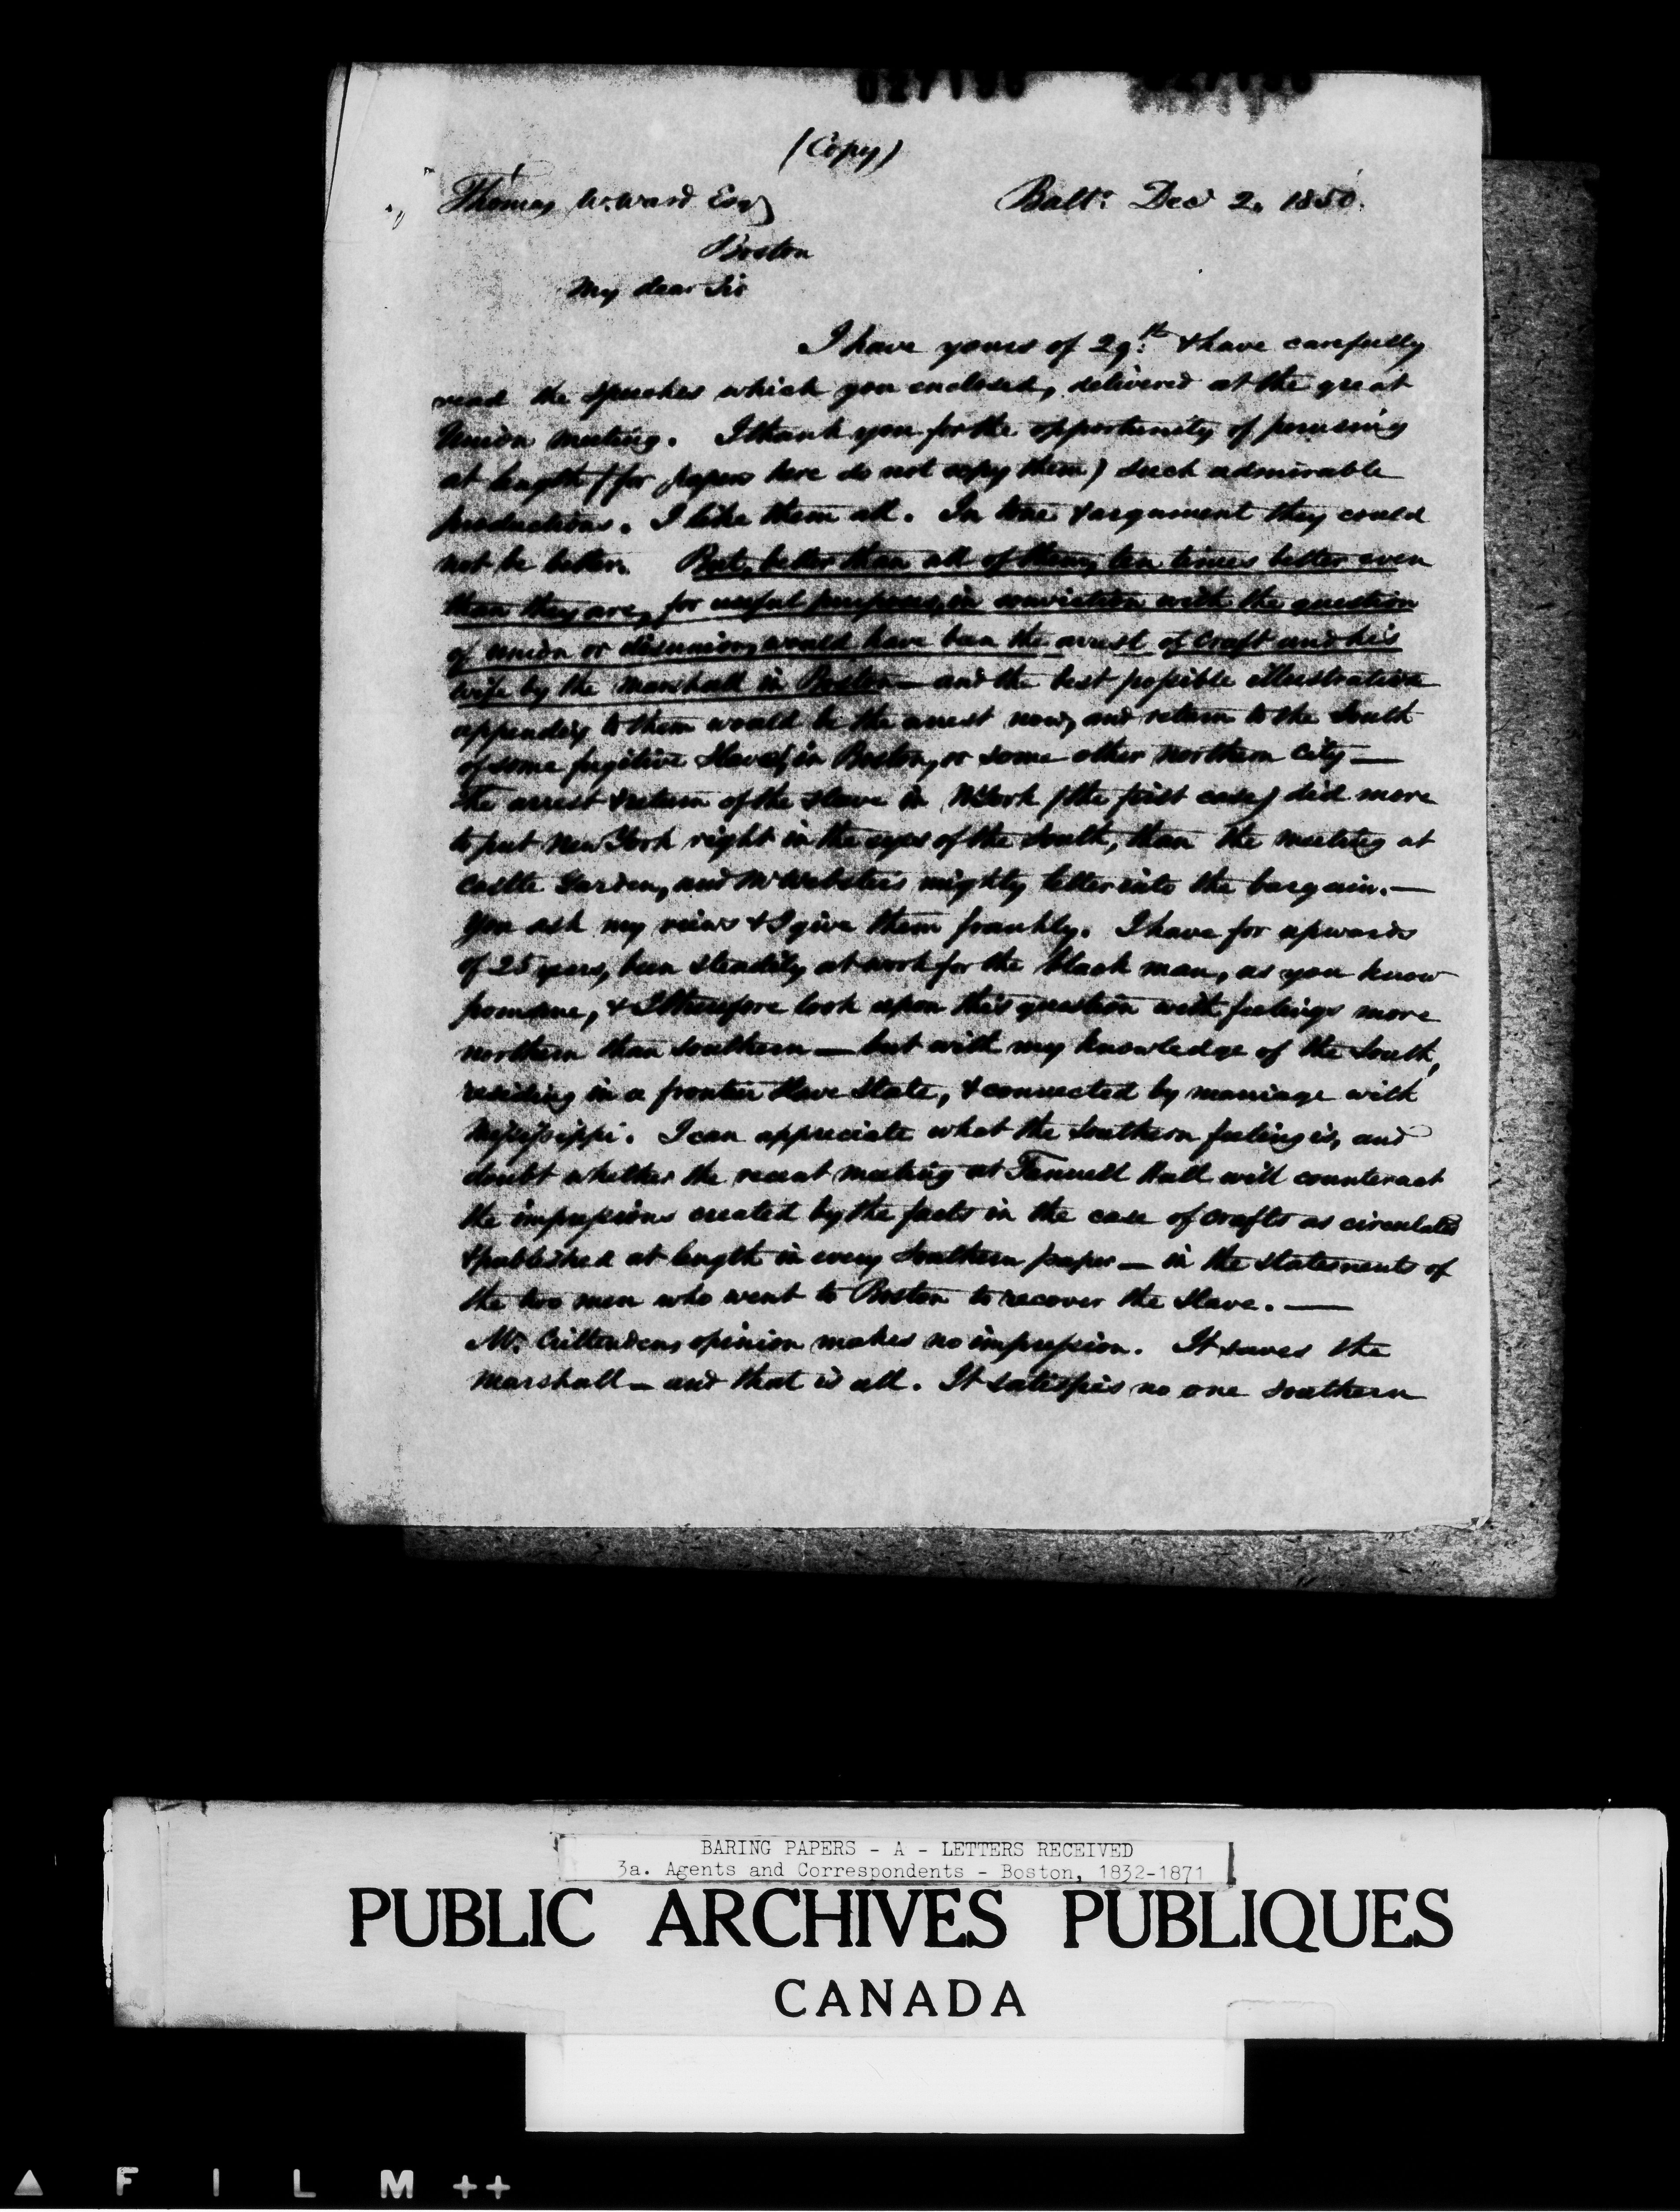 (Copy)
Thomas W. Ward Esq
Balto. Decr 2. 1850.
Boston
My dear Sir
I have yours of 29.th & have carefully
read the speeches which you enclosed, delivered at the great
Union meeting. I thank you for the opportunity of perusing
at length (for papers here do not copy them) such admirable
productions. I like them all. In tone & argument they could
not be better. But, better than all of them, ten times better even
than they are, for useful purposes, in conviction with the question
of union or disunion, would have been the arrest of Craft and his
wife by the Marshall in Boston — and the best possible illustrative
appendix to them would be the arrest now, and return to the South
of some fugitive Slave, in Boston, or some other northern city —
The arrest & return of the slave in N York (the first case) did more
to put New York right in the eyes of the South, than the meeting at
Castle Garden, and Mr Websters mighty letter into the bargain. —
You ask my views & I give them frankly. I have for upwards
of 25 years, been steadily at work for the black man, as you know
& I therefore look upon this question with feelings more
northern than southern — but with my knowledge of the South,
residing in a frontier slave State, & connected by marriage with
Mississippi. I can appreciate what the southern feeling is, and
doubt whether the recent meeting at Fanueil Hall will counteract
the impressions created by the facts in the case of Crafts as circulated
& published at length in every Southern paper — in the statements of
the two men who went to Boston to recover the slave. —
Mr. Crittendens opinion makes no impression. It saves the
Marshall — and that is all. It satisfies no one southern
BARING PAPERS - A - LETTERS RECEIVED
3a. Agents and Correspondents - Boston, 1832-1871
PUBLIC ARCHIVES PUBLIQUES
CANADA
▲ F I L M ++